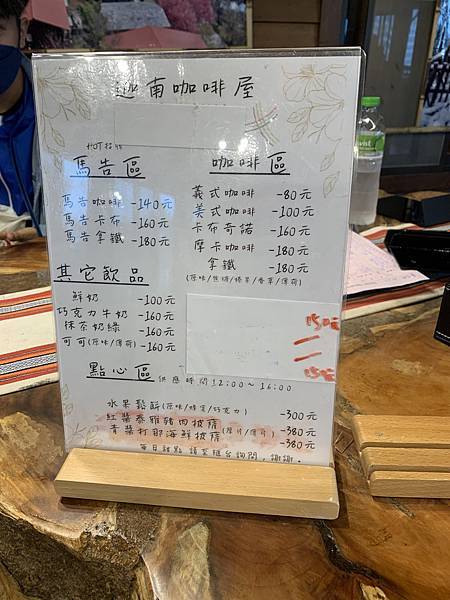 迦南咖啡屋
馬告區
馬告咖啡 -140元
馬告卡布 -160元
馬告拿鐵 -180元
咖啡區
義式咖啡 -80元
美式咖啡 -100元
卡布奇諾 -160元
摩卡咖啡 -180元
拿鐵 -180元
(原味/焦糖/榛果/香草/薄荷)
其它飲品
鮮奶 -100元
巧克力牛奶 -160元
抹茶奶綠 -160元
可可(原味/薄荷) -160元
點心區 供應時間12:00~16:00
水果鬆餅(原味/蜂蜜/巧克力) -300元
紅藜泰雅豬肉披薩 -380元
青醬打那海鮮披薩 -380元
每日甜點請至櫃台詢問,謝謝。